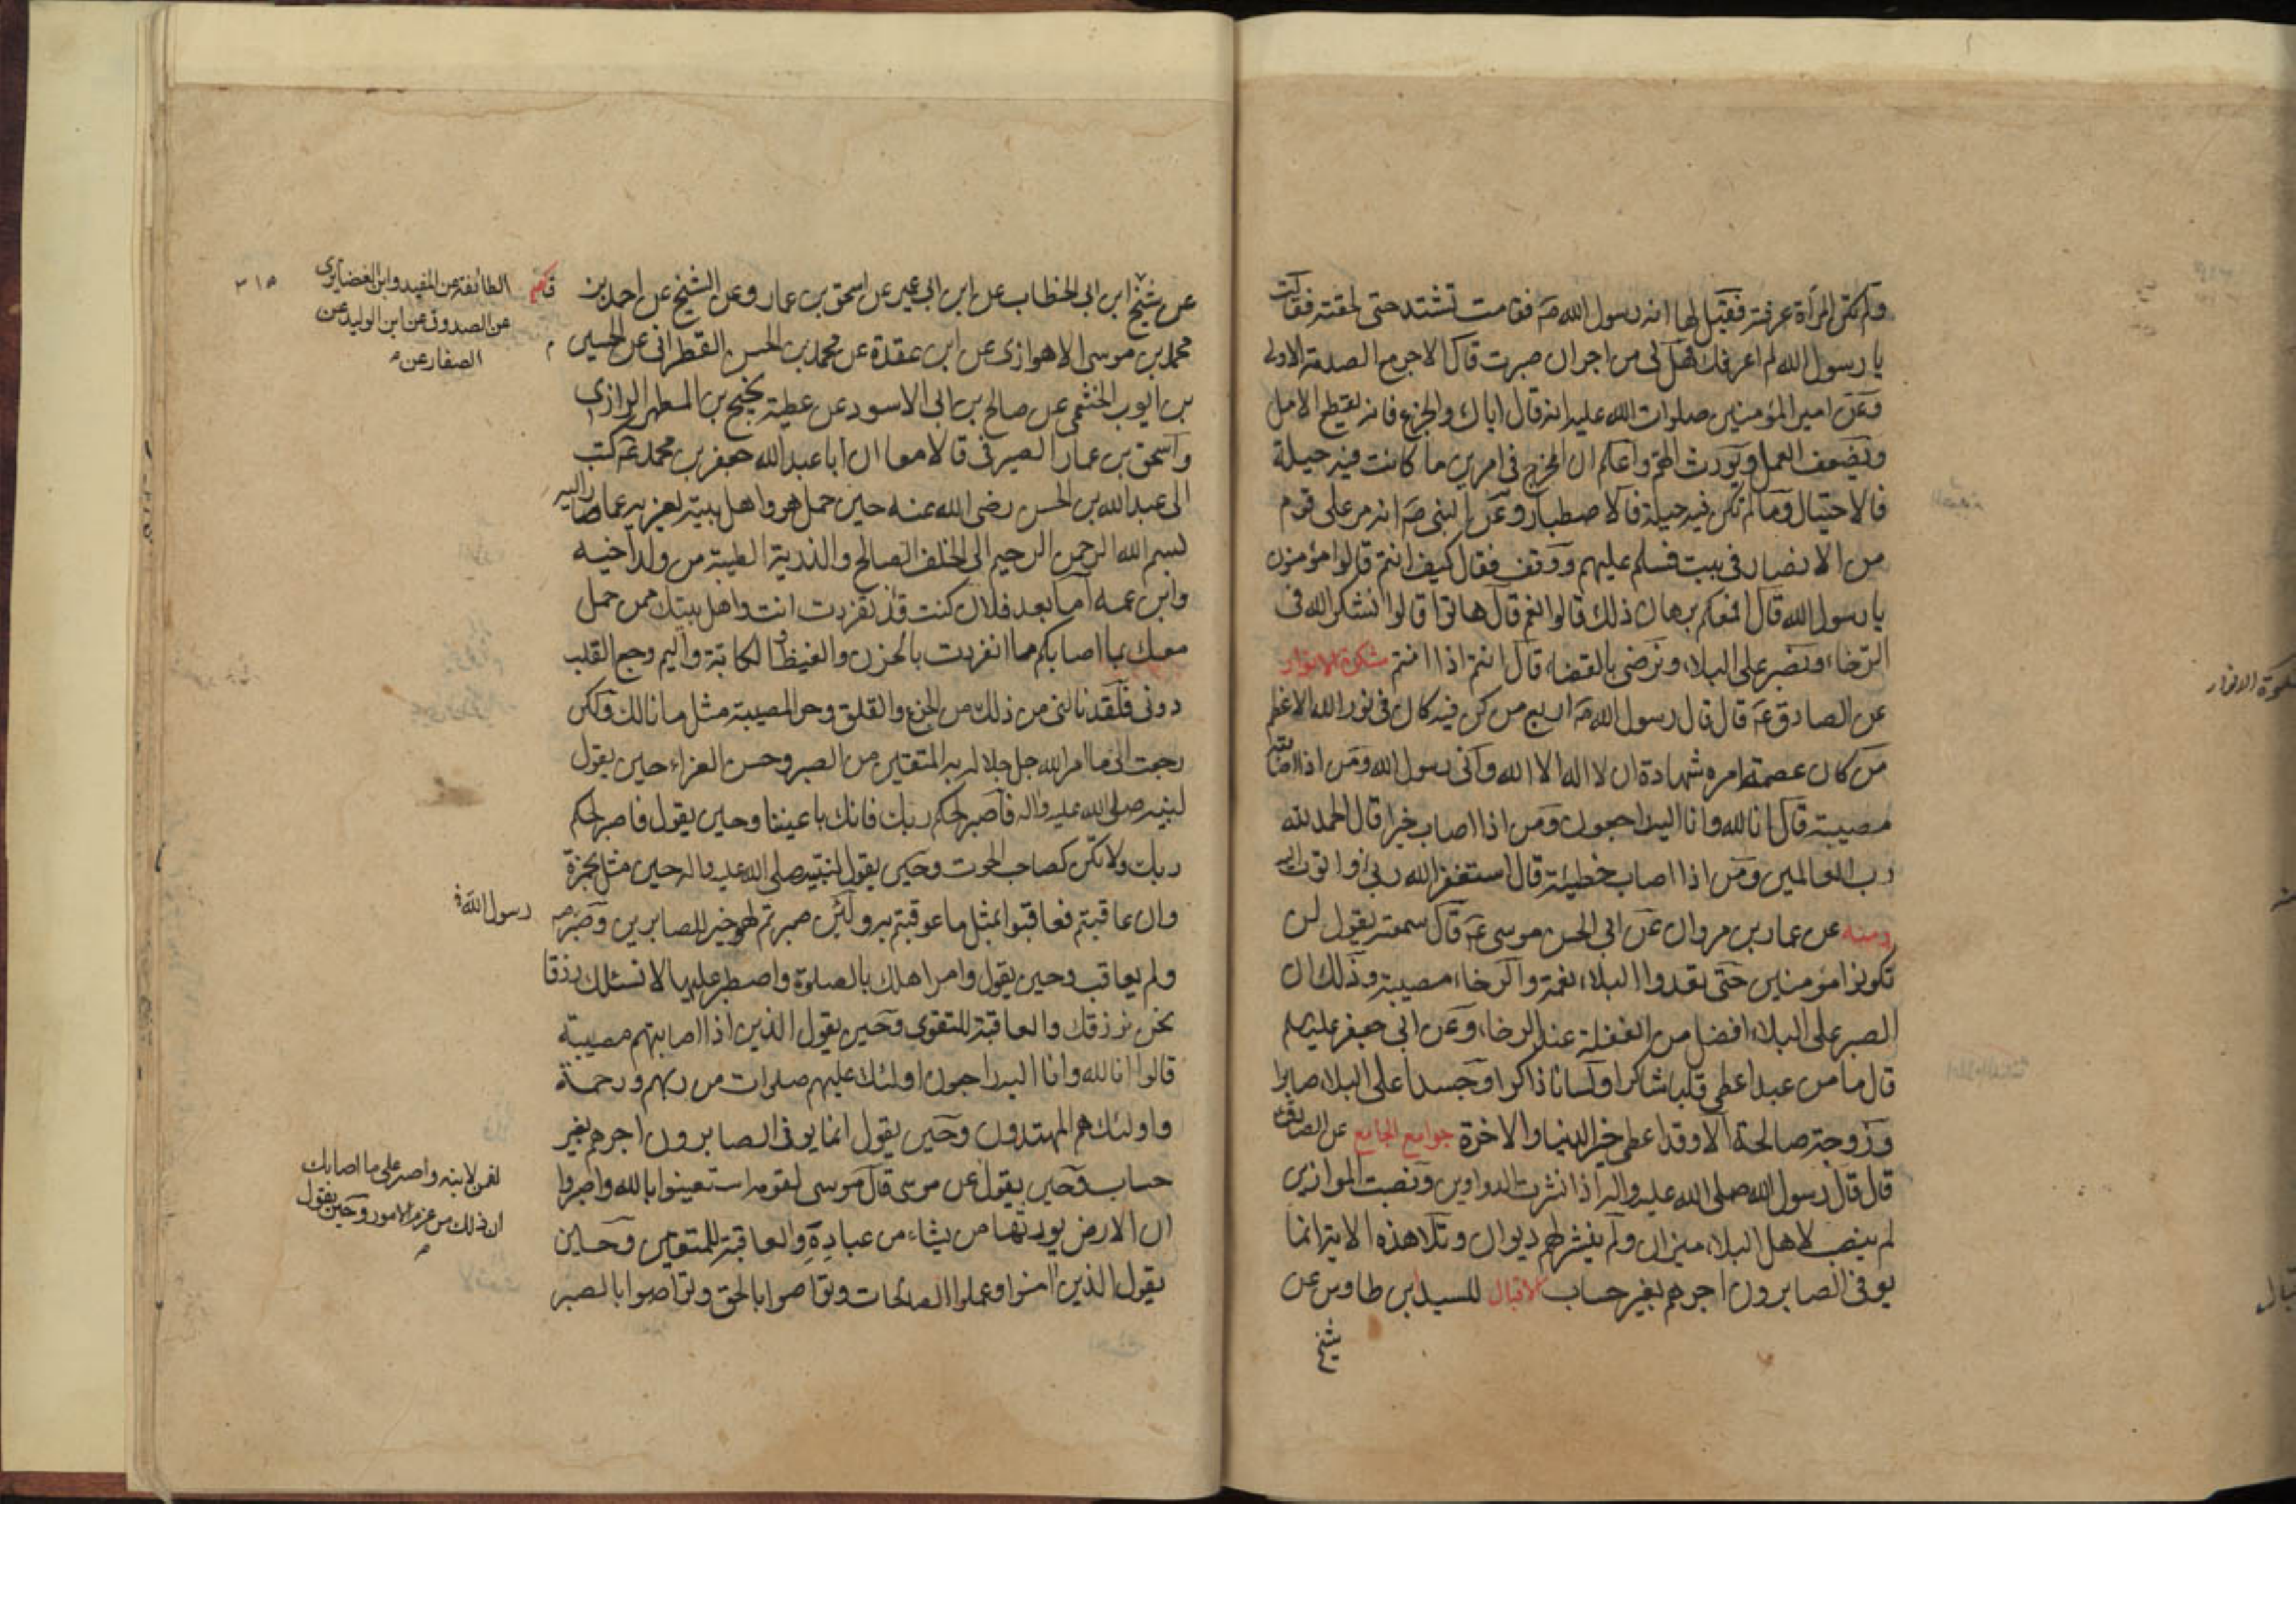 ولم تكن المرأة عرفته فقيل لها انه رسول الله ص فقامت تشتد حتى لحقته فقالت
يا رسول الله لم اعرفك فهل لى من اجر ان صبرت قال الاجر مع الصدمة الاولى
وعن امير المؤمنين صلوات الله عليه انه قال اياك والجزع فانه يقطع الامل
ويضعف العمل ويورث الهم واعلم ان المخرج فى امرين ما كانت فيه حيلة
فالاحتيال وما لم تكن فيه حيلة فالاصطبار وعن النبى ص انه مر على قوم
من الانصار فى بيت فسلم عليهم ووقف فقال كيف انتم قالوا مؤمنون
يا رسول الله قال افمعكم برهان ذلك قالوا نعم قال هاتوا قالوا نشكر الله فى
الرخاء ونصبر على البلاء ونرضى بالقضاء قال انتم اذا انتم مشكوة الانوار
عن الصادق ع قال قال رسول الله ص اربع من كن فيه كان فى نور الله الاعظم
من كان عصمة امره شهادة ان لا اله الا الله وانى رسول الله ومن اذا اصابته
مصيبة قال انا لله وانا اليه راجعون ومن اذا اصاب خيرا قال الحمد لله
رب العالمين ومن اذا اصاب خطيئة قال استغفر الله ربى واتوب اليه
ومنه عن عمار بن مروان عن ابى الحسن موسى ع قال سمعته يقول لن
تكونوا مؤمنين حتى تعدوا البلاء نعمة والرخاء مصيبة وذلك ان
الصبر على البلاء افضل من الغفلة عند الرخاء وعن ابى جعفر عليه السلم
قال ما من عبد اعطى قلبا شاكرا ولسانا ذاكرا وجسدا على البلاء صابرا
وزوجة صالحة الا وقد اعطى خير الدنيا والاخرة جوامع الجامع عن الصادق ع
قال قال رسول الله صلى الله عليه واله اذا نشرت الدواوين ونصبت الموازين
لم ينصب لاهل البلاء ميزان ولم ينشر لهم ديوان وتلا هذه الاية انما
يوفى الصابرون اجرهم بغير حساب الاقبال للسيد بن طاوس عن
شيخ
مشكوة الانوار
عن شيخ ابن ابى الخطاب عن ابن ابى عمير عن اسحق بن عمار وعن الشيخ عن احمد بن
محمد بن موسى الاهوازى عن ابن عقدة عن محمد بن الحسن القطرانى عن الحسين
بن ايوب الخثعمى عن صالح بن ابى الاسود عن عطية بن نجيح بن المطهر الرازى
واسحق بن عمار الصيرفى قالا معا ان ابا عبد الله جعفر بن محمد ع كتب
الى عبد الله بن الحسن رضى الله عنه حين حمل هو واهل بيته يعزيه عما صار اليه
بسم الله الرحمن الرحيم الى الخلف الصالح والذرية الطيبة من ولد اخيه
وابن عمه اما بعد فلان كنت قد تفردت انت واهل بيتك ممن حمل
معك بما اصابكم ما انفردت بالحزن والغيظ والكابة واليم وجع القلب
دونى فلقد نالنى من ذلك من الجزع والقلق وحر المصيبة مثل ما نالك ولكن
رجعت الى ما امر الله جل جلاله به المتقين من الصبر وحسن العزاء حين يقول
لنبيه صلى الله عليه واله فاصبر لحكم ربك فانك باعيننا وحين يقول فاصبر لحكم
ربك ولا تكن كصاحب الحوت وحين يقول لنبيه صلى الله عليه واله حين مثل بحمزة
وان عاقبتم فعاقبوا بمثل ما عوقبتم به ولئن صبرتم لهو خير للصابرين وصبر
ولم يعاقب وحين يقول وامر اهلك بالصلوة واصطبر عليها لا نسئلك رزقا
نحن نرزقك والعاقبة للتقوى وحين يقول الذين اذا اصابتهم مصيبة
قالوا انا لله وانا اليه راجعون اولئك عليهم صلوات من ربهم ورحمة
واولئك هم المهتدون وحين يقول انما يوفى الصابرون اجرهم بغير
حساب وحين يقول عن موسى قال موسى لقومه استعينوا بالله واصبروا
ان الارض يورثها من يشاء من عباده والعاقبة للمتقين وحين
يقول الذين امنوا وعملوا الصالحات وتواصوا بالحق وتواصوا بالصبر
الطائفة عن المفيد وابن الغضايرى
عن الصدوق عن ابن الوليد عن
الصفار عن
٣١٥
رسول الله ص
لقمن لابنه واصبر على ما اصابك
ان ذلك من عزم الامور وحين يقول